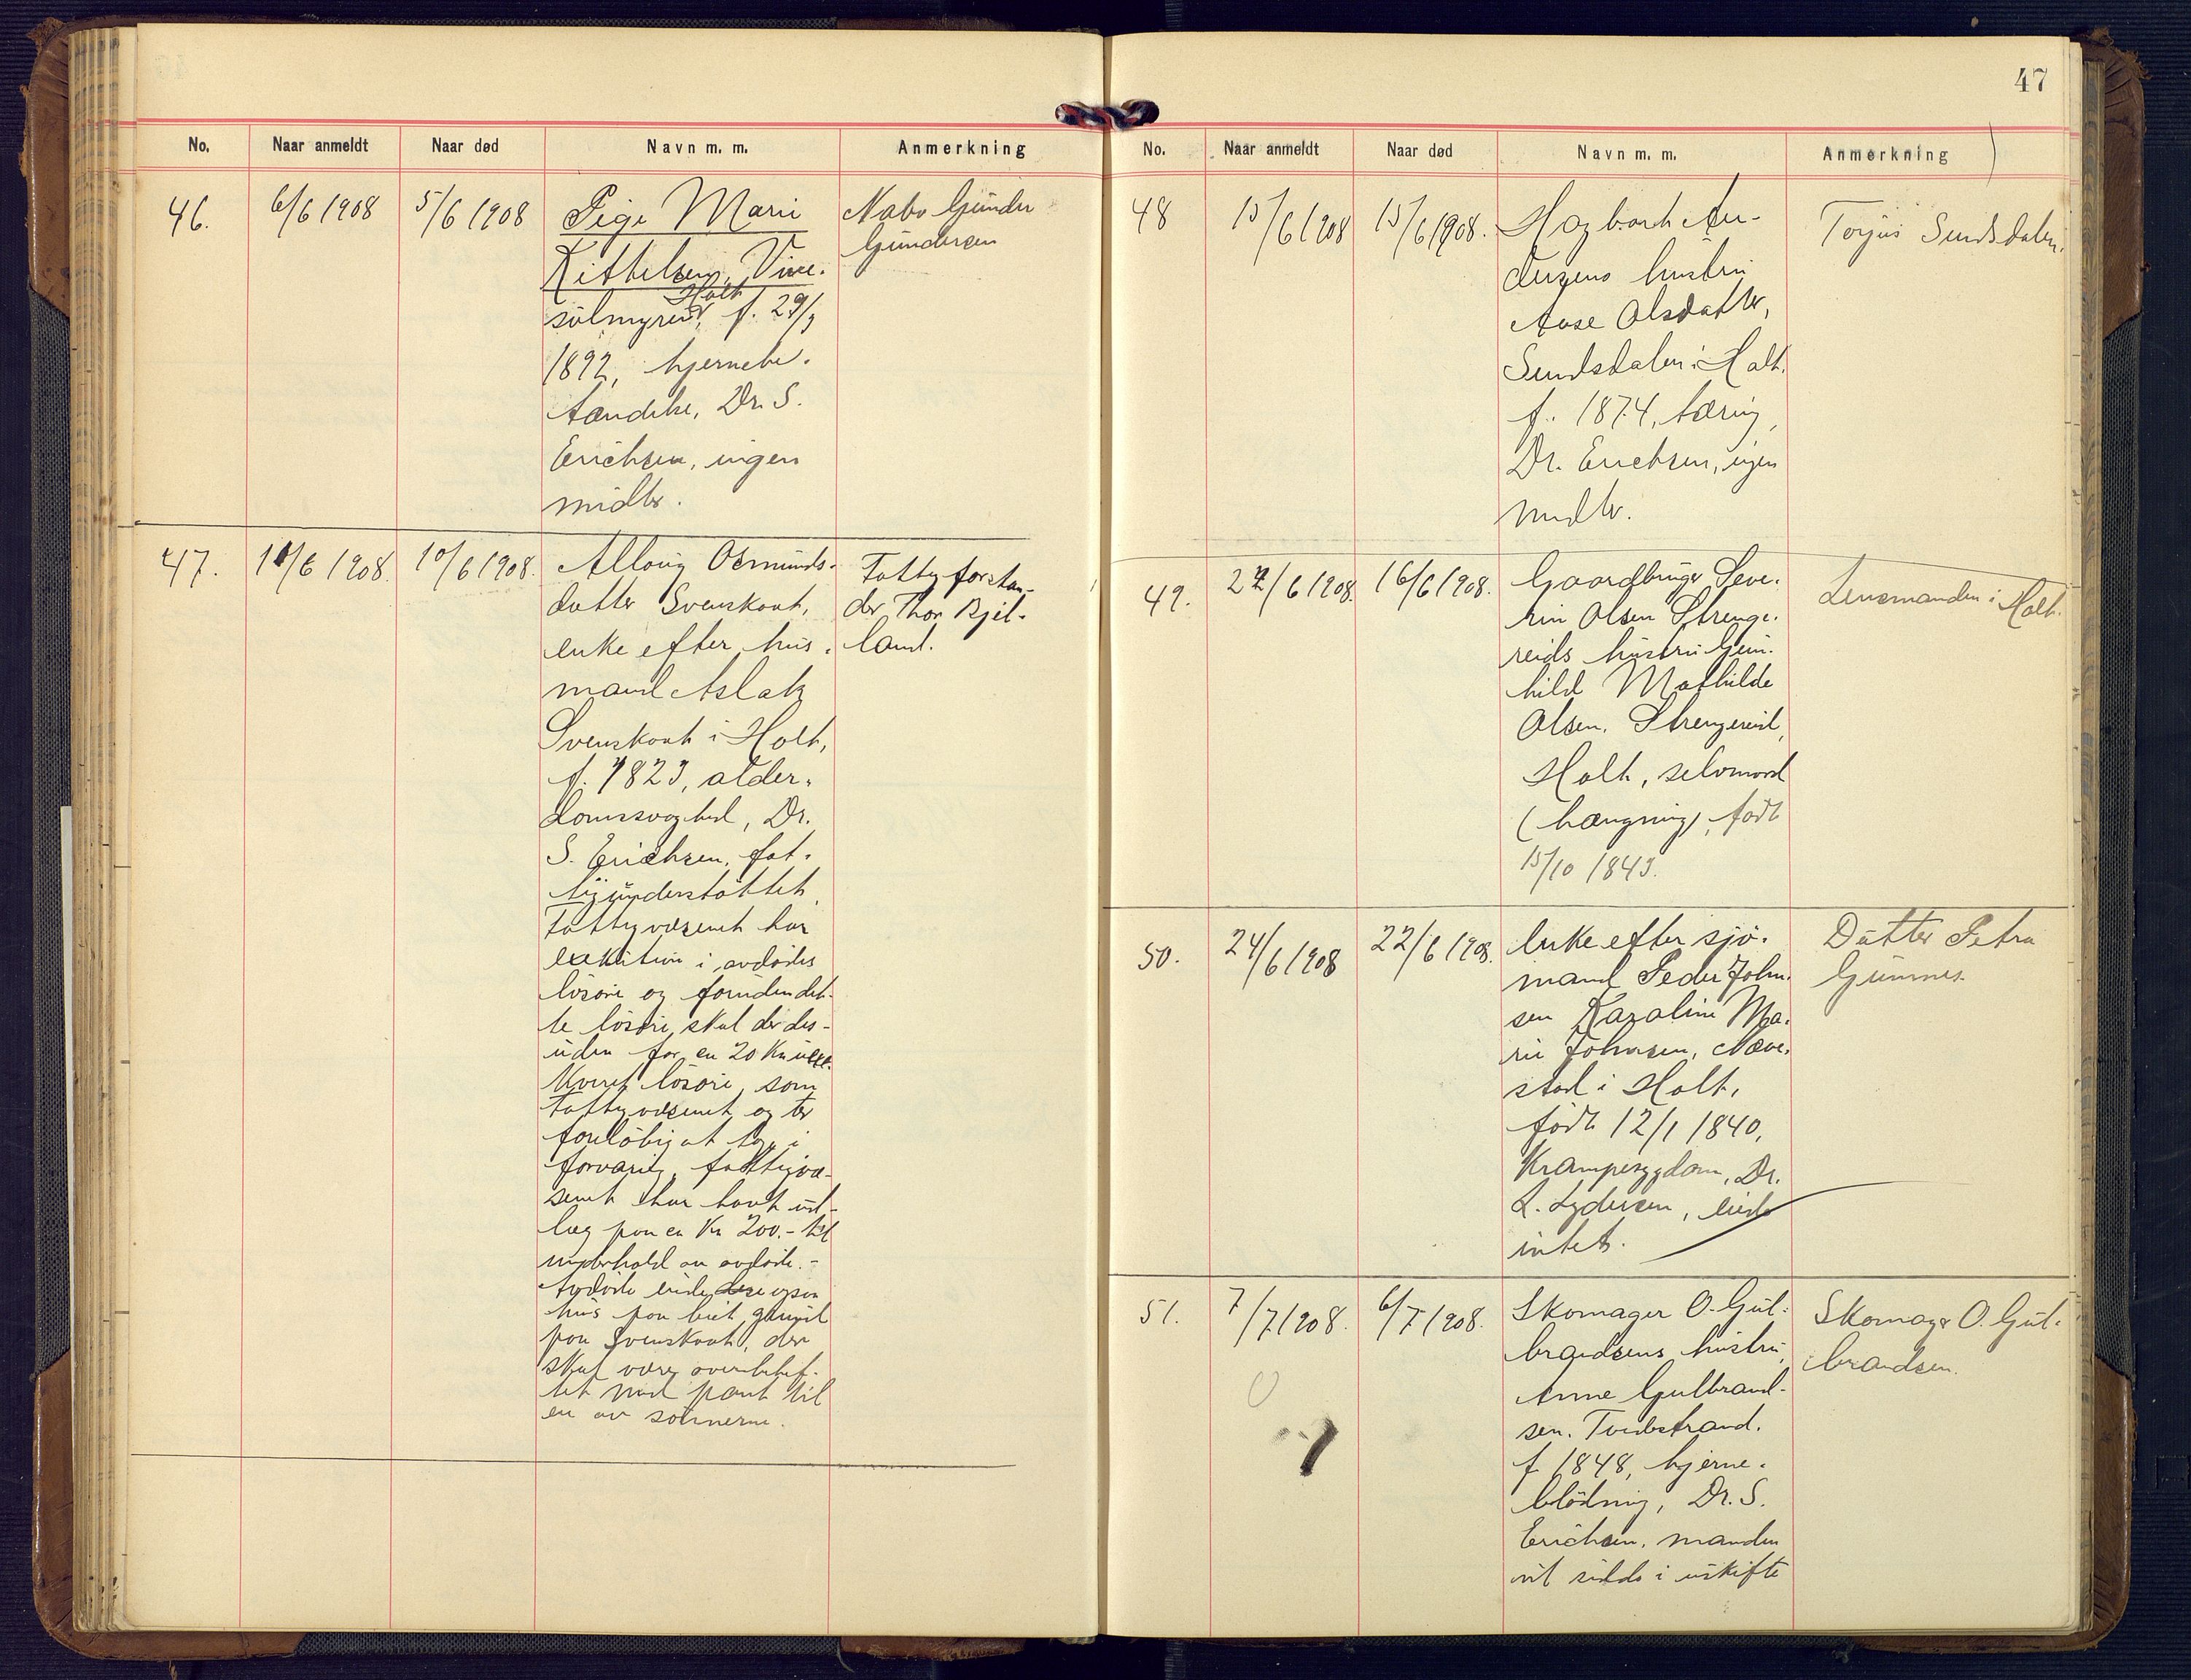 47
No.
Naar anmeldt
Naar død
Navn m. m.
Anmerkning
46.
6/6 1908
5/6 1908
Pige Marie
Kittelsen, Vine-
sølmyren, Holt
f. 29/9
1892, hjernebe-
tændelse, Dr. S.
Erichsen, ingen
midler.
Nabo Gunder
Gundersen
47.
11/6 1908.
10/6 1908.
Osmunds-
datter Svenskaat,
enke efter hus-
mand Aslak
Svenskaat i Holt,
f. 1823, alder-
domssvaghed, Dr.
S. Erichsen, fat-
tigunderstøttet,
Fattigvæsenet har
exekution i avdødes
løsøre og foruden det-
te løsøre skal der des-
uden for en 20 Kr
løsøre, som
Fattigvæsenet
foreløbig at ta i
forvaring, fattigvæ-
senet har havt ut-
læg paa ca Kr 200.- til
underhold av avdøde.-
Avdøde eiede ogsaa
hus paa leiet grund
paa Svenskaat, der
skal være overhef-
tet med pant til
en av sønnerne.
Fattigforstan-
der Thor Bjel-
land.
No.
Naar anmeldt
Naar død
Navn m. m.
Anmerkning
48
15/6 1908
15/6 1908.
Hagbart An-
dersens hustru
Aase Olsdatter,
Sundsdalen i Holt.
f. 1874, tæring,
Dr. Erichsen, ingen
midler.
Torjus Sundsdalen.
49.
22/6 1908.
16/6 1908.
Gaardbruger Seve-
rin Olsen Strenge-
reids hustru Gun-
hild Mathilde
Olsen. Strengereid,
Holt, selvmord
(hængning), født
15/10 1843.
Lensmanden i Holt.
50.
24/6 1908
22/6 1908.
Enke efter sjø-
mand Peder John-
sen Karaline Ma-
rie Johnsen, Næve-
stad i Holt,
født 12/1 1840,
Krampesygdom, Dr.
L. Lydersen, eiede
intet.
Datter Petra
Gumnes.
51.
7/7 1908.
6/7 1908.
Skomager O. Gul-
brandsens hustru,
Anne Gulbrand-
sen. Tvedestrand.
f. 1848, hjerne-
blødning, Dr. S.
Erichsen, manden
vil sidde i uskifte
Skomager O. Gul-
brandsen.